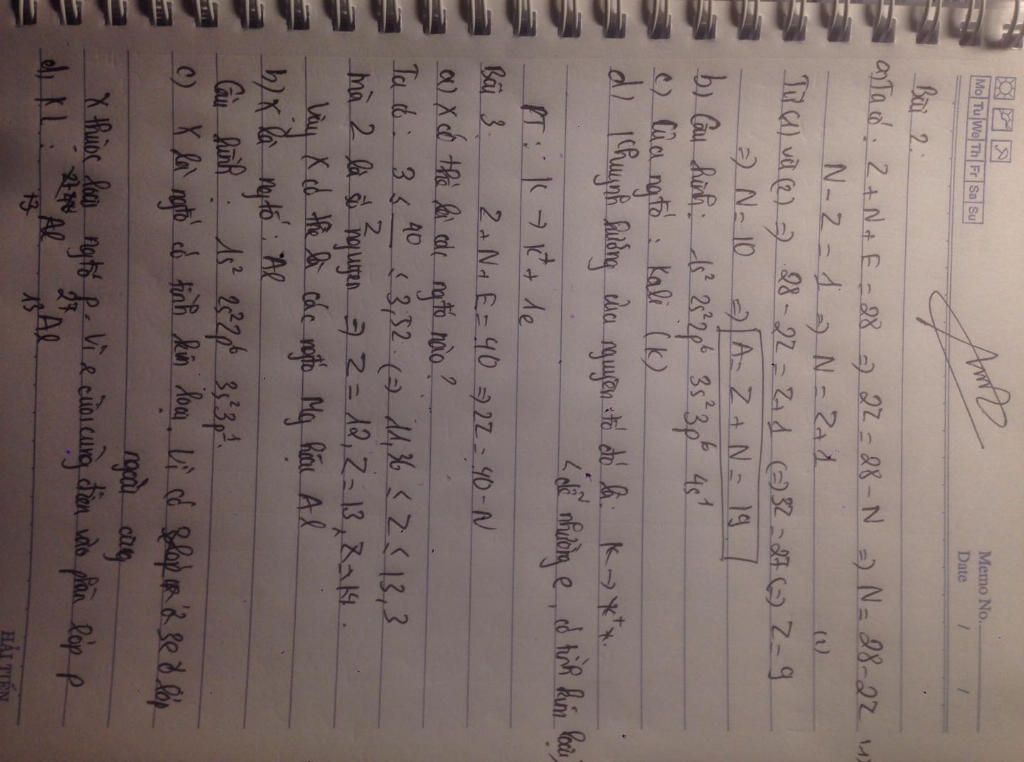 Memo No.
Mo Tu We Th Fr Sa Su
Date / /
Bài 2.
a) Ta có: Z + N + E = 28 => 2Z = 28 - N => N = 28 - 2Z
N - Z = 1 => N = Z + 1 (1)
Từ (1) và (2) => 28 - 2Z = Z + 1 (=) 3Z = 27 (=) Z = 9
=> N = 10 => A = Z + N = 19
b) Cấu hình: 1s² 2s² 2p⁶ 3s² 3p⁶ 4s¹
c) Của ngtố: Kali (K)
d) Khuynh hướng của nguyên tố đó là: K → 
(dễ nhường e, có tính kim loại)
PT: K → K⁺ + 1e
Bài 3. Z + N + E = 40 => 2Z = 40 - N
a) X có thể là các ngtố nào?
Ta có: 3 ≤ 40/Z < 3,52. (=) 11,36 < Z < 13,3
mà Z là số nguyên => Z = 12, Z = 13, Z = 14.
Vậy X có thể là các ngtố Mg hữu Al
b) X là ngtố: Al
Cấu hình: 1s² 2s² 2p⁶ 3s² 3p¹.
c) X là ngtố có tính kim loại. Vì có 3e ở lớp
ngoài cùng
X thuộc loại ngtố p. Vì e cuối cùng điền vào phân lớp p
d) KL: Al ²⁷₁₃Al
HẢI TIẾN